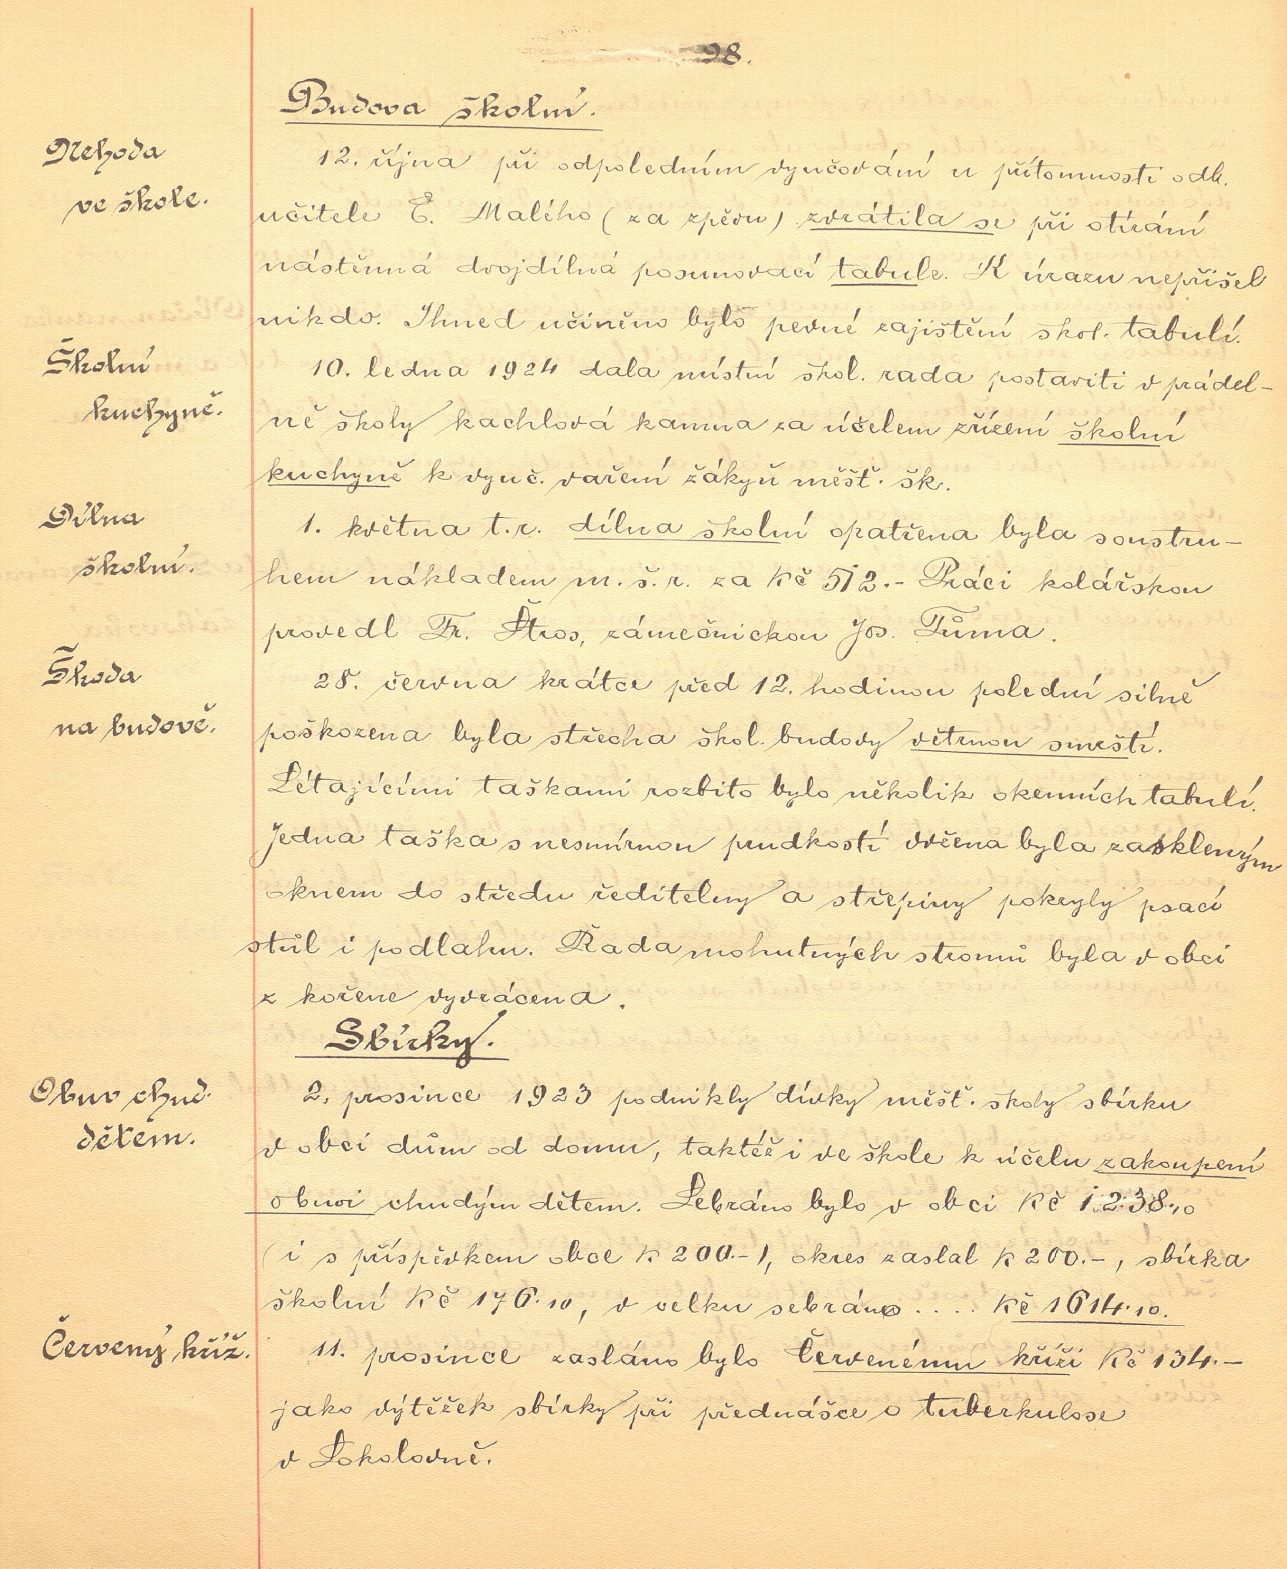 98.
Budova školní.
Nehoda
ve škole.
12. října při odpoledním vyučování u přítomnosti odb.
učitele E. Malého (za zpěvu) zvrátila se při otírání
nástěnná dvojdílná posunovací tabule. K úrazu nepřišel
nikdo. Ihned učiněno bylo pevné zajištění škol. tabulí.
Školní
kuchyně.
10. ledna 1924 dala místní škol. rada postaviti v prádel-
ně školy kachlová kamna za účelem zřízení školní
kuchyně k vyuč. vaření žákyň měšť. šk.
Dílna
školní.
1. května t.r. dílna školní opatřena byla soustru-
hem nákladem m. š. r. za Kč 512.- Práci kolářskou
provedl Fr. Štros, zámečnickou Jos. Tůma.
Škoda
na budově.
28. června krátce před 12. hodinou polední silně
poškozena byla střecha škol. budovy větrnou smrští.
Létajícími taškami rozbito bylo několik okenních tabulí.
Jedna taška s nesmírnou prudkostí vržena byla zaskleným
oknem do středu ředitelny a střepiny pokryly psací
stůl i podlahu. Řada mohutných stromů byla v obci
z kořene vyvrácena.
Sbírky.
Obuv chud.
dětem.
2. prosince 1923 podnikly dívky měšť. školy sbírku
v obci dům od domu, taktéž i ve škole k účelu zakoupení
obuvi chudým dětem. Sebráno bylo v obci Kč 1.238.10
(i s příspěvkem obce k 200.-), okres zaslal k 200.-, sbírka
školní Kč 176.10, v celku sebráno .... Kč 1614.10.
Červený kříž.
11. prosince zasláno bylo Červenému kříži Kč 134.-
jako výtěžek sbírky při přednášce o tuberkulose
v Sokolovně.